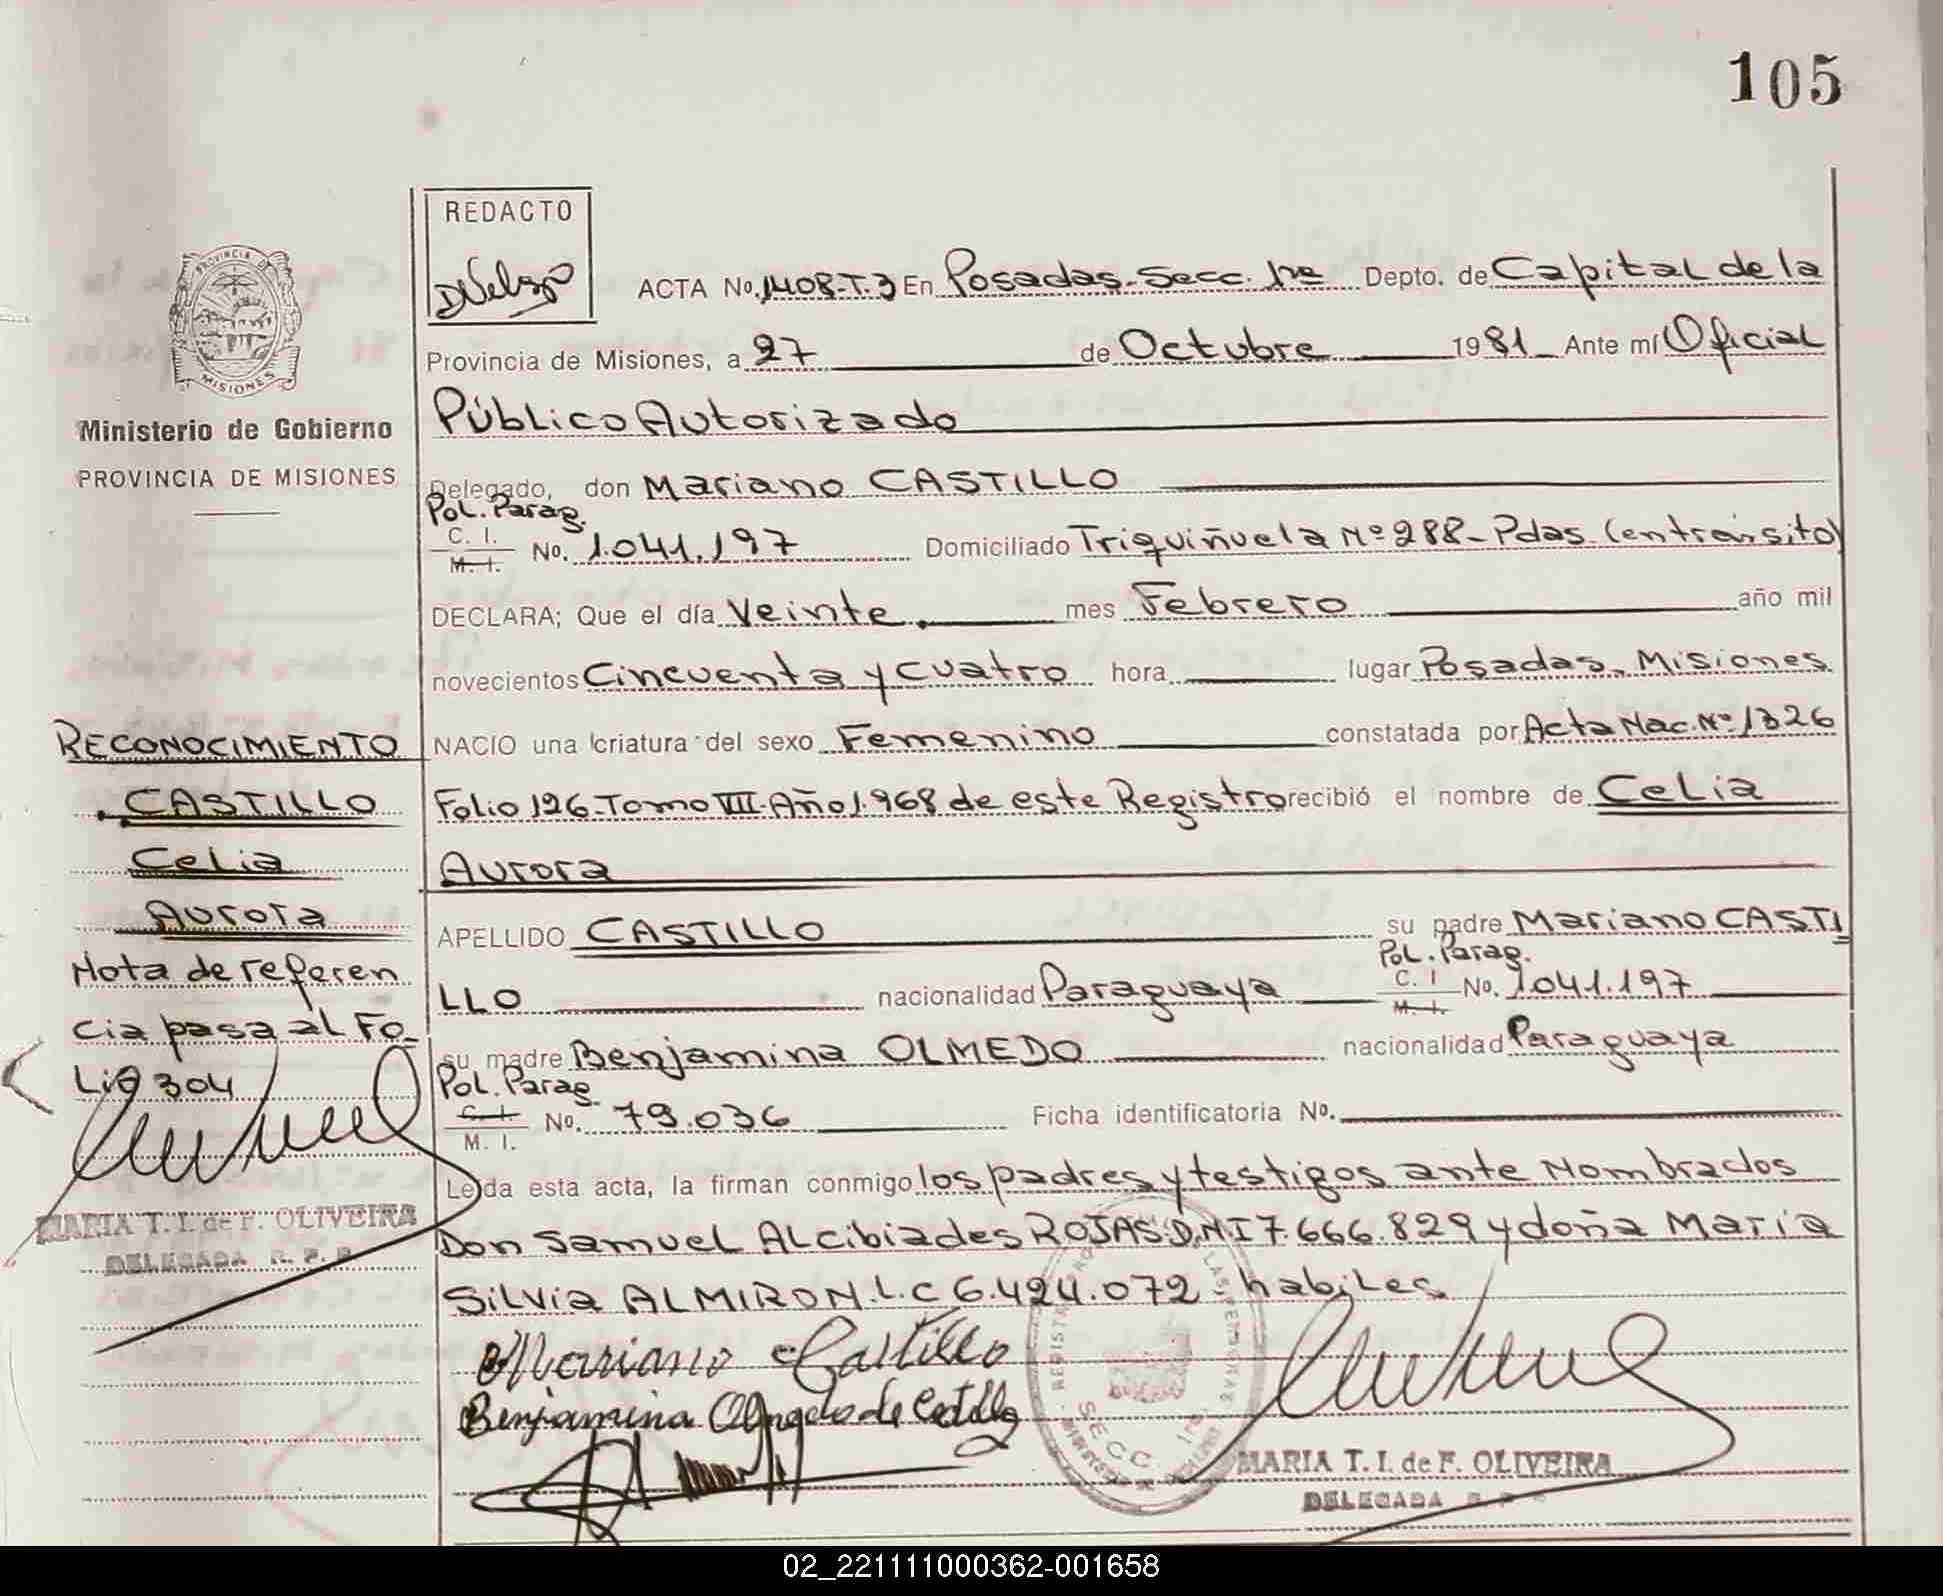 105
REDACTO
ACTA No. 1408-T.3 En Posadas-Secc. 1ra Depto. de Capital de la
Provincia de Misiones, a 27 de Octubre 1981 Ante mí Oficial
Público Autorizado
Delegado, don Mariano CASTILLO
Pol. Parag.
C. I.
M. I.
No. 1.041.197 Domiciliado Triquiñuela Nº 288-Pdas (en tránsito)
DECLARA; Que el día Veinte. mes Febrero año mil
novecientos Cincuenta y cuatro hora lugar Posadas, Misiones.
NACIO una criatura del sexo Femenino constatada por Acta Nac. Nº 1326
Folio 126-Tomo VII-Año 1.968 de este Registro recibió el nombre de Celia
Aurora
APELLIDO CASTILLO su padre Mariano CASTI
Pol. Parag.
LLO nacionalidad Paraguaya C. I M. I. No. 1041.197
su madre Benjamina OLMEDO nacionalidad Paraguaya
Pol. Parag.
C. I.
M. I.
No. 79.036 Ficha identificatoria No.
Leída esta acta, la firman conmigo los padres y testigos ante Nombrados
Don Samuel Alcibiades ROJAS D.N.I 7.666.829 y doña María
Silvia ALMIRON. L.C 6.424.072 - habiles
Mariano Castillo
Benjamina
SECC 1ra.
MARIA T. I. de F. OLIVEIRA
DELEGADA
PROVINCIA DE
MISIONES
Ministerio de Gobierno
PROVINCIA DE MISIONES
RECONOCIMIENTO
CASTILLO
Celia
Aurora
Nota de referen
cia pasa al Fo-
lio 304
MARIA T. I. de F. OLIVEIRA
DELEGADA R. P.
02_221111000362-001658